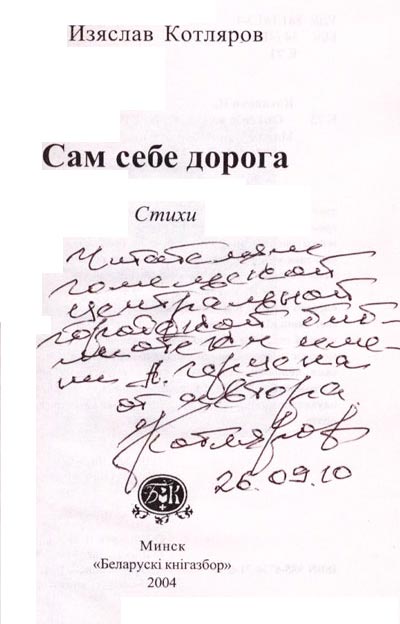 Изяслав Котляров
Сам себе дорога
Стихи
Читателям
гомельской
центральной
городской биб-
лиотеки име-
ни А. Герцена
от автора.
Котляров
26.09.10
БК
Минск
«Беларускі кнігазбор»
2004